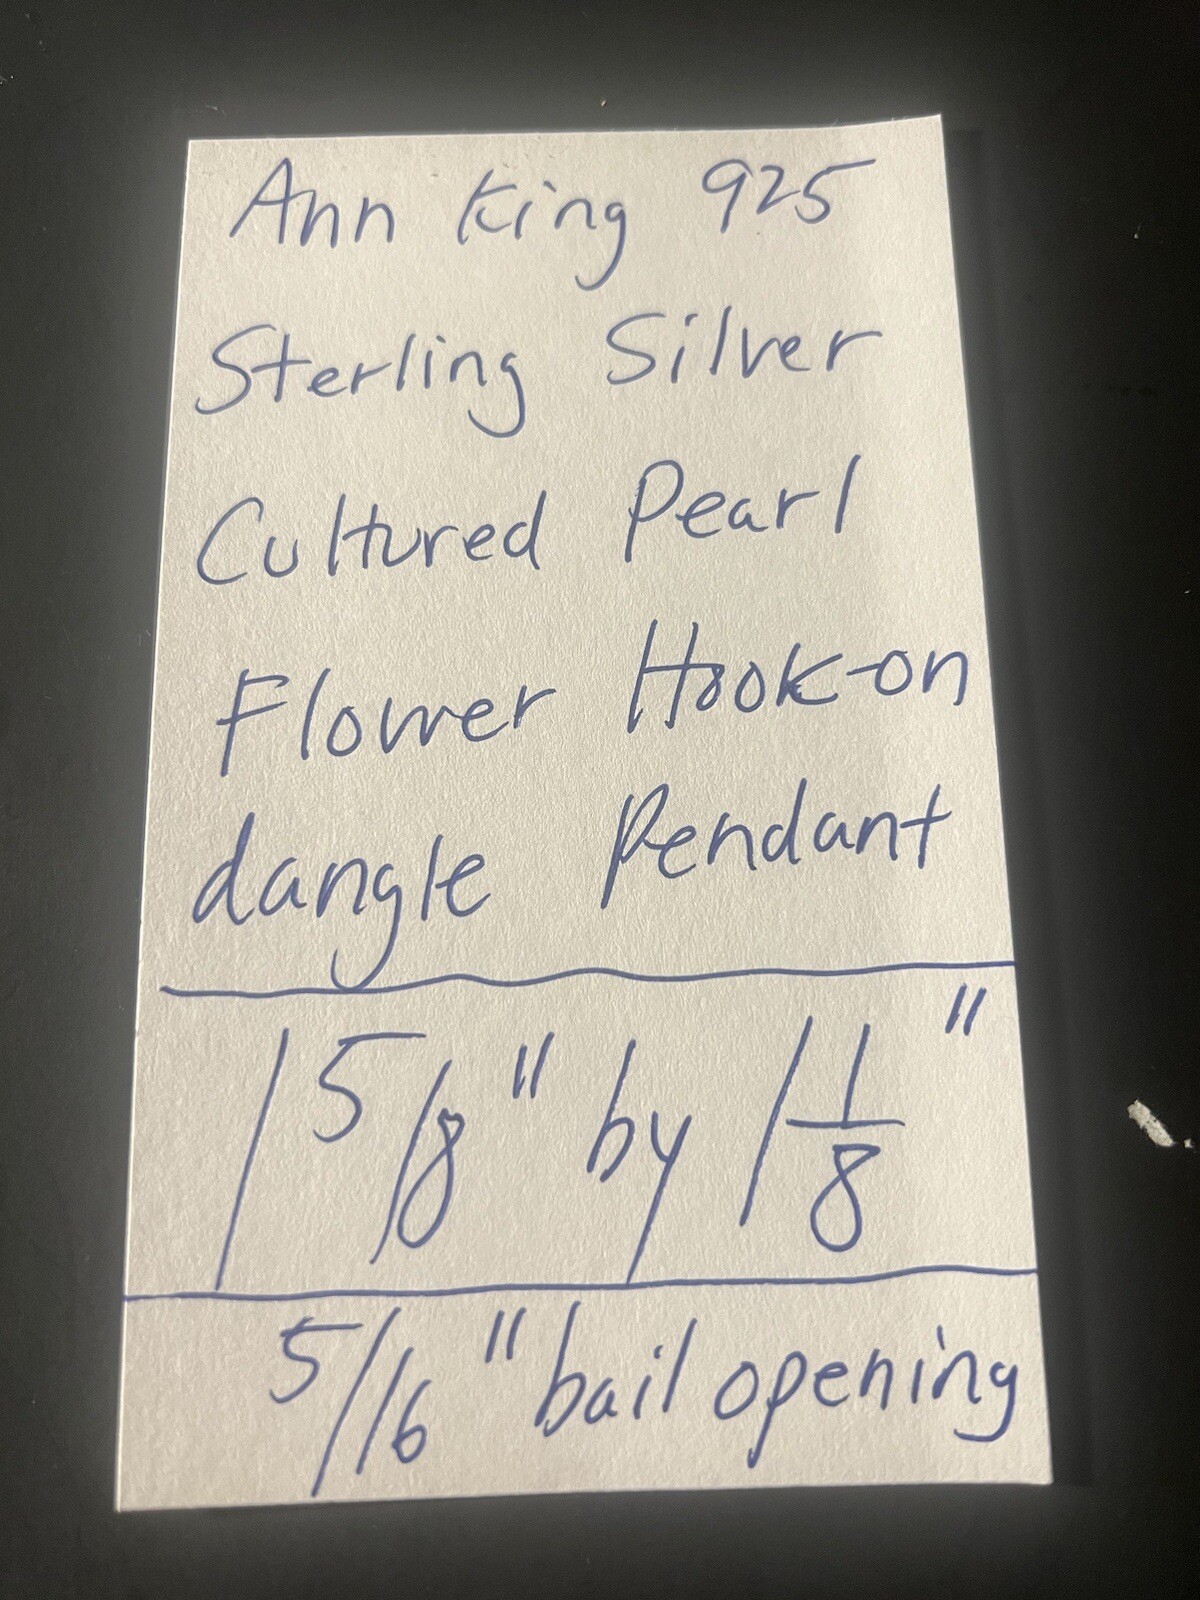 Ann King 925
Sterling Silver
Cultured Pearl
Flower Hook-on
dangle Pendant
1 5/8" by 1 1/8"
5/16" bail opening